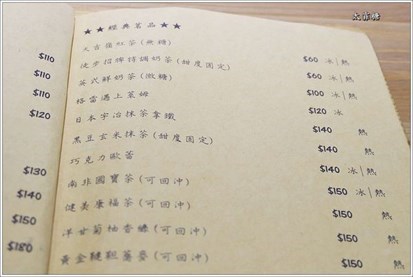 大吉祥
★★經典茗品★★
大吉嶺紅茶(無糖) $60 冰|熱
徒步招牌特調奶茶(甜度固定) $60 冰|熱
英式鮮奶茶(微糖) $100 冰|熱
格雷遇上茱姆 $120 冰
日本宇治抹茶拿鐵 $140 熱
黑豆玄米抹茶(甜度固定) $140 熱
巧克力歐蕾 $140 冰|熱
南非國寶茶(可回沖) $150 冰|熱
健美康福茶(可回沖) $150 熱
洋甘菊柚香糖(可回沖) $150 熱
黃金韃靼蕎麥(可回沖) $150 熱
$110
$110
$110
$120
$130
$140
$150
$180